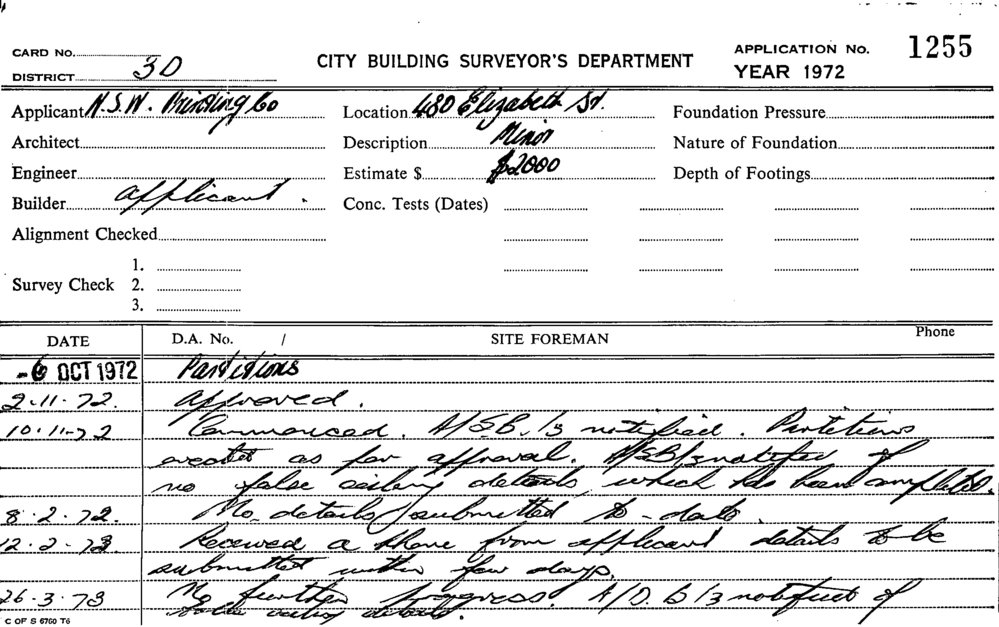 CARD No.
DISTRICT 3D
CITY BUILDING SURVEYOR'S DEPARTMENT
APPLICATION No. 1255
YEAR 1972
Applicant N.S.W. Printing Co
Location 480 Elizabeth St.
Foundation Pressure
Architect
Description Minor
Nature of Foundation
Engineer
Estimate $ $2000
Depth of Footings
Builder applicant.
Conc. Tests (Dates)
Alignment Checked
Survey Check 1.
2.
3.
DATE D.A. No. / SITE FOREMAN Phone
-6 OCT 1972 Partitions
2.11.72. Approved.
10.11.72 Commenced. notified. Partitions
erected as per approval. notified of
no false ceiling details, which has been completed.
8.2.72. No details submitted to-date.
12.2.73 Received a phone from applicant details to be
submitted within few days.
26.3.73 No further progress. notified of
false ceiling details.
C OF S 6760 T6